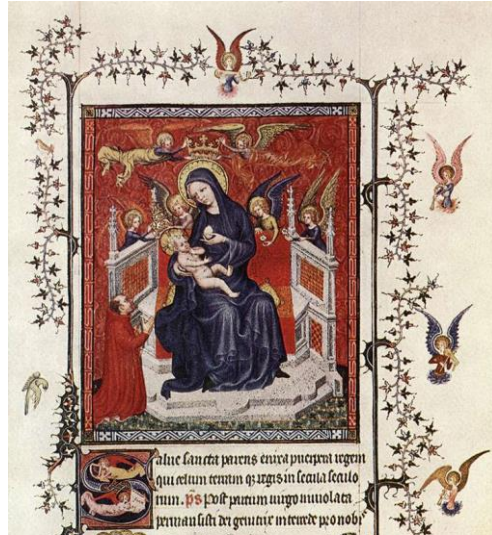 Salue sancta parens enixa puerpera regem
qui celum terram qz regis in secula seculo
rum. ps Post partum uirgo inuiolata
permansisti dei genitrix intercede pro nobis